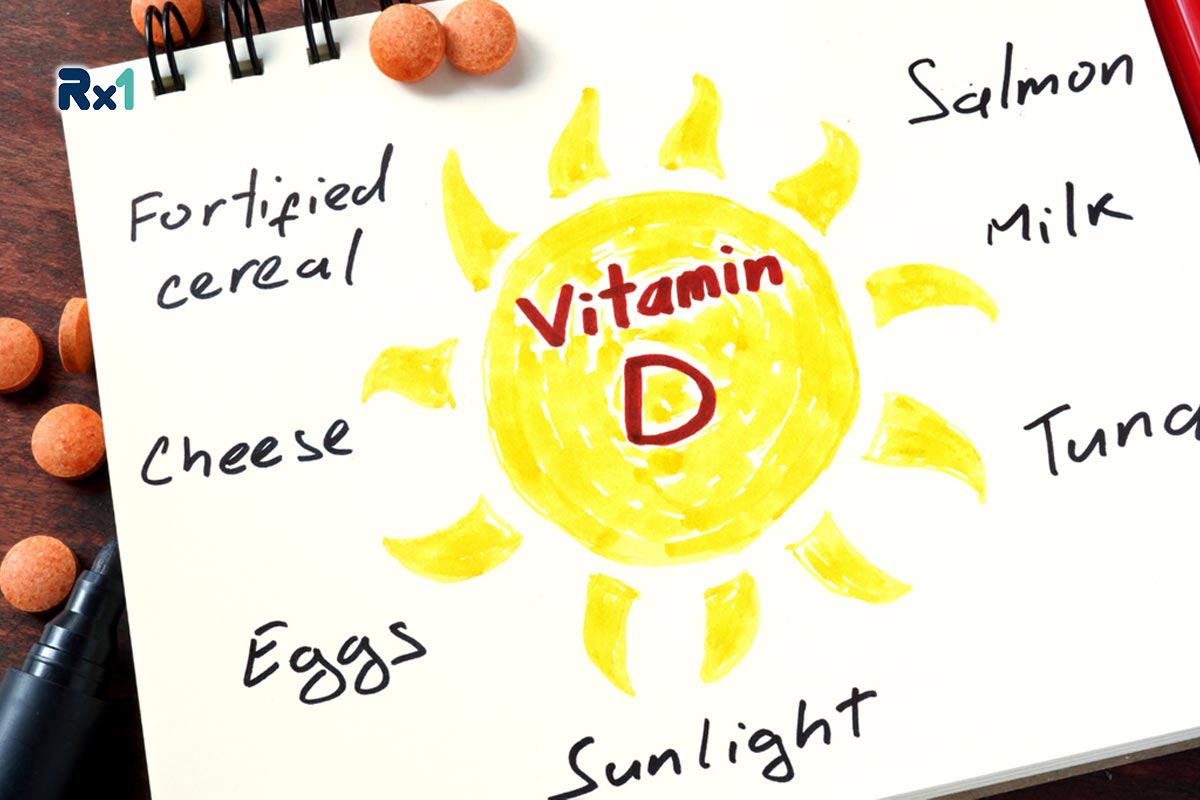 Rx1
Salmon
Fortified
cereal
Milk
Vitamin
D
Cheese
Tuna
Eggs
Sunlight